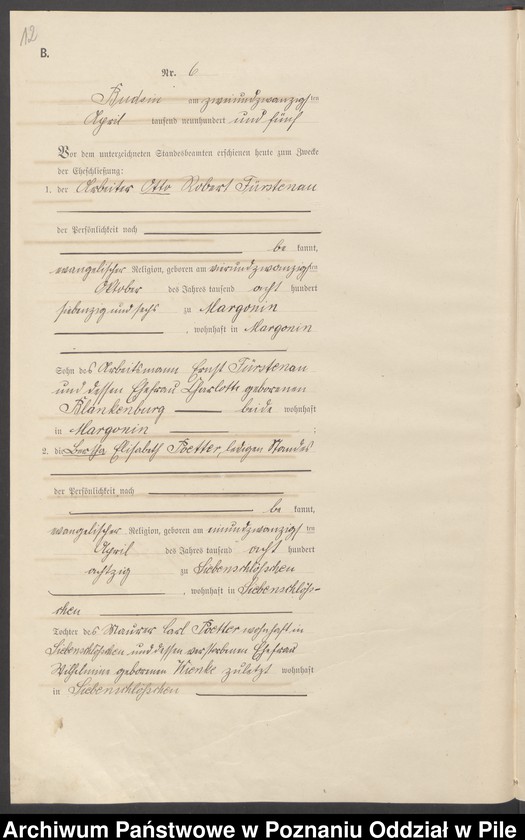 12
B.
Nr. 6
Budsin am zweiundzwanzigsten
April tausend neunhundert und fünf
Vor dem unterzeichneten Standesbeamten erschienen heute zum Zwecke
der Eheschließung:
1. der Arbeiter Otto Robert Fürstenau
der Persönlichkeit nach
be kannt,
evangelischer Religion, geboren am vierundzwanzigsten
Oktober des Jahres tausend acht hundert
siebenzig und sechs zu Margonin
, wohnhaft in Margonin
Sohn des Arbeitsmann Ernst Fürstenau
und dessen Ehefrau Charlotte geborenen
Blankenburg beide wohnhaft
in Margonin ;
2. die Bertha Elisabeth Boetter, ledigen Standes
der Persönlichkeit nach
be kannt,
evangelischer Religion, geboren am einundzwanzigsten
April des Jahres tausend acht hundert
achtzig zu Siebenschlößchen
, wohnhaft in Siebenschlöß-
chen
Tochter des Maurer Carl Boetter wohnhaft in
Siebenschlößchen und dessen verstorbenen Ehefrau
Wilhelmine geborenen Wienke zuletzt wohnhaft
in Siebenschlößchen
Archiwum Państwowe w Poznaniu Oddział w Pile